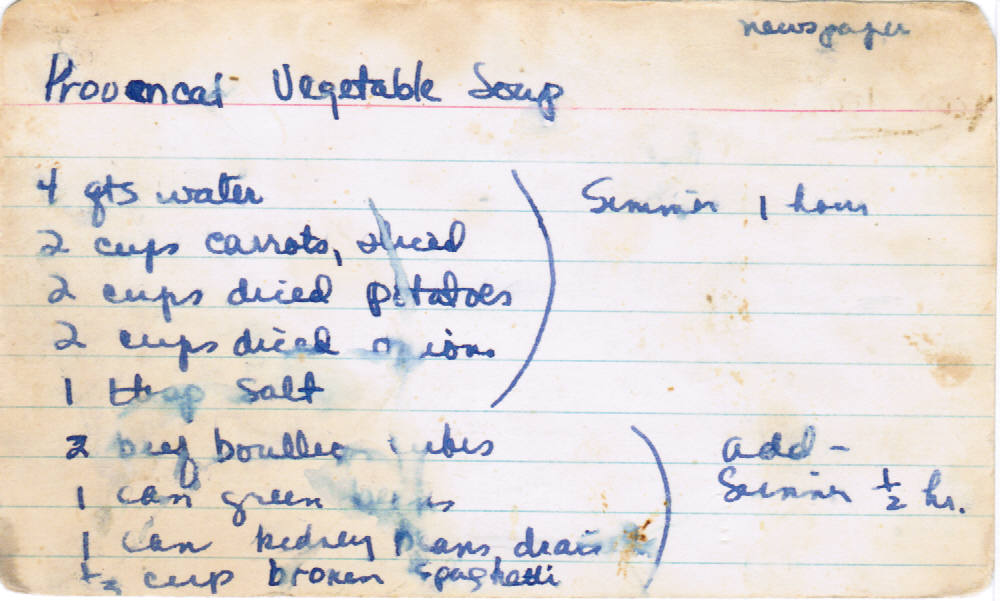 newspaper
Provencal Vegetable Soup
4 qts water
2 cups carrots, diced
2 cups diced potatoes
2 cups diced onions
1 tbsp salt
Simmer 1 hour
2 beef boullion cubes
1 can green beans
1 can kidney beans, drain
½ cup broken spaghetti
add -
Simmer ½ hr.